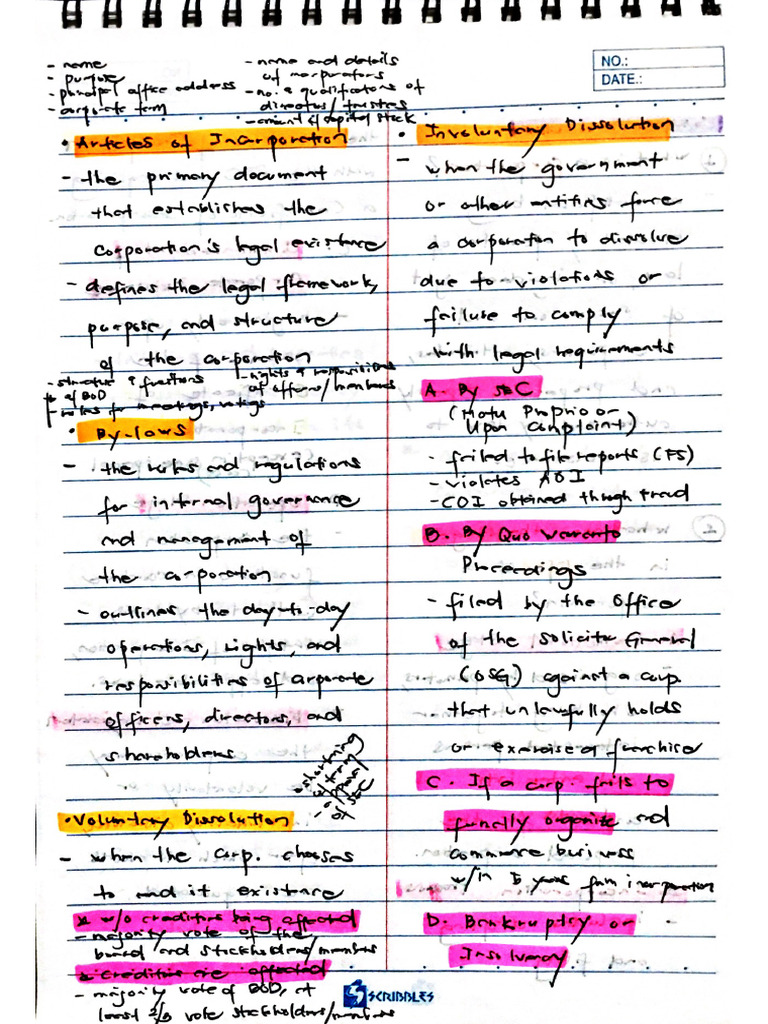 - name
- purpose
- principal office address
- corporate term
- name and details
of incorporators
- no. & qualifications of
directors/trustees
- amount of capital stock
NO.:
DATE.:
• Articles of Incorporation
- the primary document
that establishes the
corporation's legal existence
- defines the legal framework,
purpose, and structure
of the corporation
- structure & functions
of BOD
- rules for meetings, votings
- rights & responsibilities
of officers/members
• By-laws
- the rules and regulations
for internal governance
and management of
the corporation
- outlines the day-to-day
operations, rights, and
responsibilities of corporate
officers, directors, and
shareholders
• shortening
of term
- approval
of SEC
• Voluntary Dissolution
- when the corp. chooses
to end it existence
* w/o creditors being affected
- majority vote of the
board and stockholders/members
* creditors are affected
- majority vote of BOD, at
least 2/3 vote stockholders/members
• Involuntary Dissolution
- when the government
or other entities force
a corporation to dissolve
due to violations or
failure to comply
with legal requirements
A. By SEC
(Motu Proprio or
Upon Complaint)
- failed to file reports (FS)
- violates AOI
- COI obtained through fraud
B. By Quo Warranto
Proceedings
- filed by the Office
of the Solicitor General
(OSG) against a corp.
that unlawfully holds
or exercise a franchise
C. If a corp. fails to
formally organize and
commence business
w/in 5 years from incorporation
D. Bankruptcy or
Insolvency
SCRIBBLES